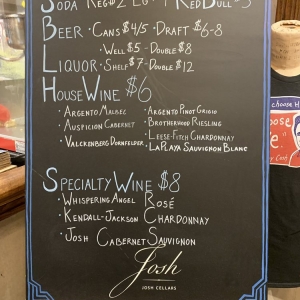 Soda Reg $2 LG Red Bull $
Beer · Cans $4/5 · Draft $6-8
Well $5 · Double $8
Liquor · Shelf $7 · Double $12
House Wine $6
· Argento Malbec · Argento Pinot Grigio
· Auspicion Cabernet · Brotherwood Riesling
· Valckenberg Dornfelder · Leese-Fitch Chardonnay
· LaPlaya Sauvignon Blanc
Specialty Wine $8
· Whispering Angel Rosé
· Kendall-Jackson Chardonnay
· Josh Cabernet Sauvignon
Josh
JOSH CELLARS